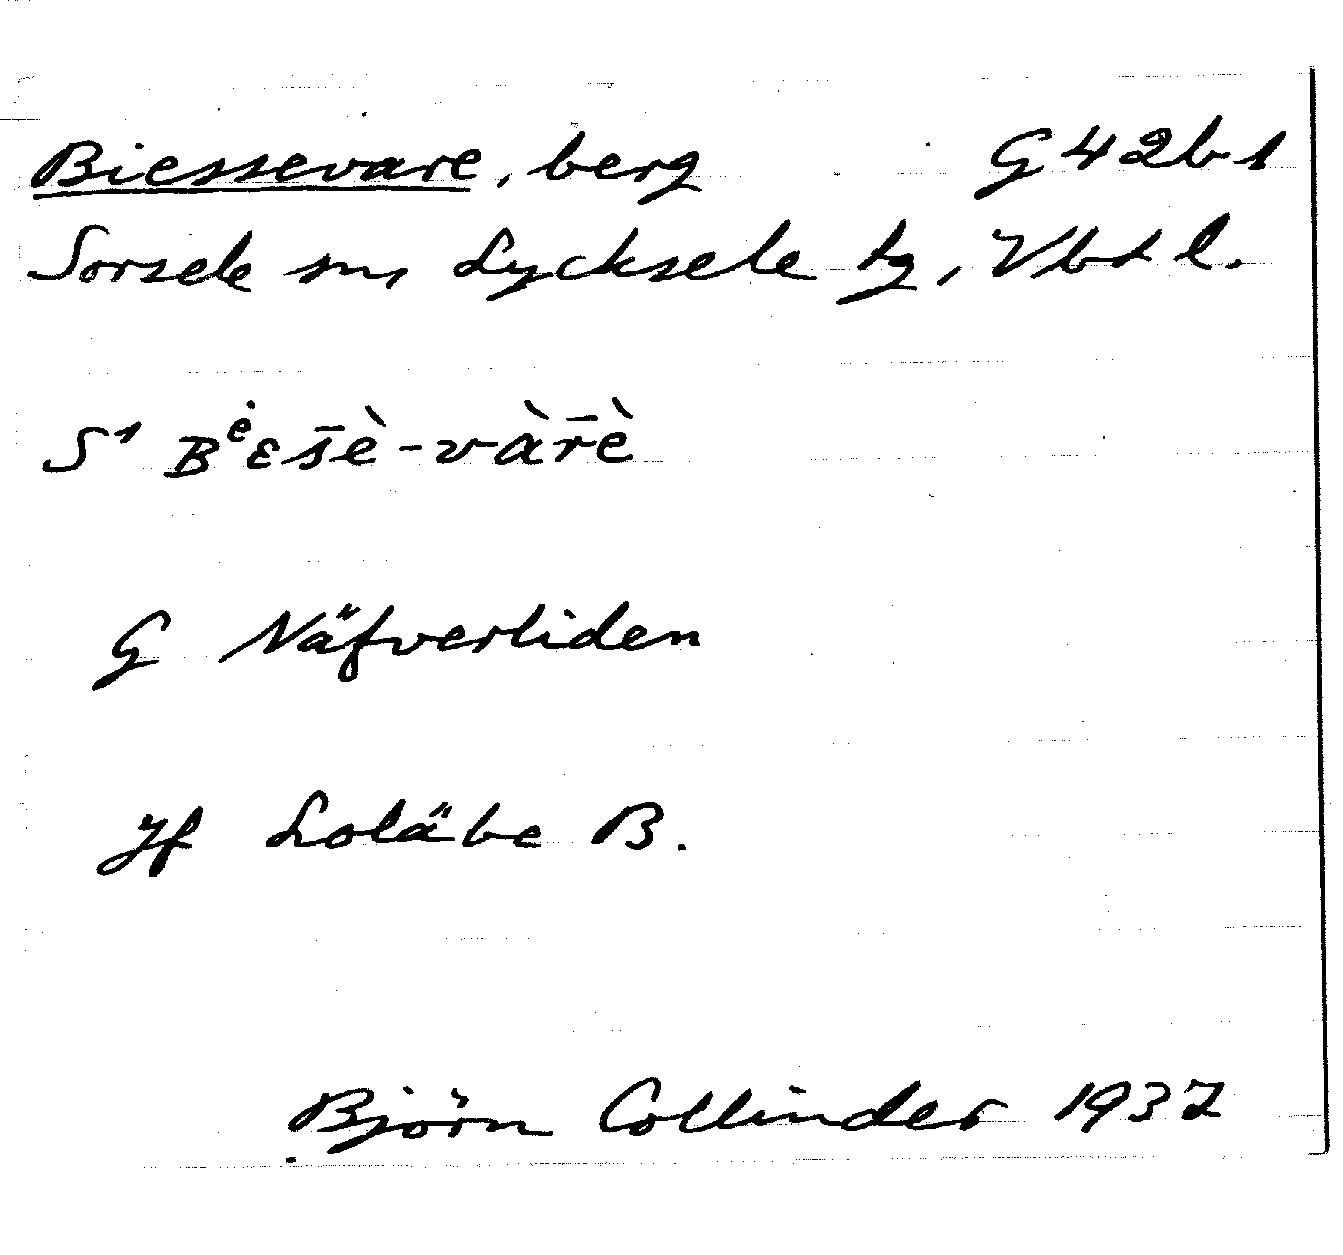 Biessevare, berg G42b1
Sorsele sn, Lycksele tg, Vbtl.
S¹ Bᵉ̇ɛs̄è-vàr̄è
G Näfverliden
Jf Loläbe B.
Björn Collinder 1937